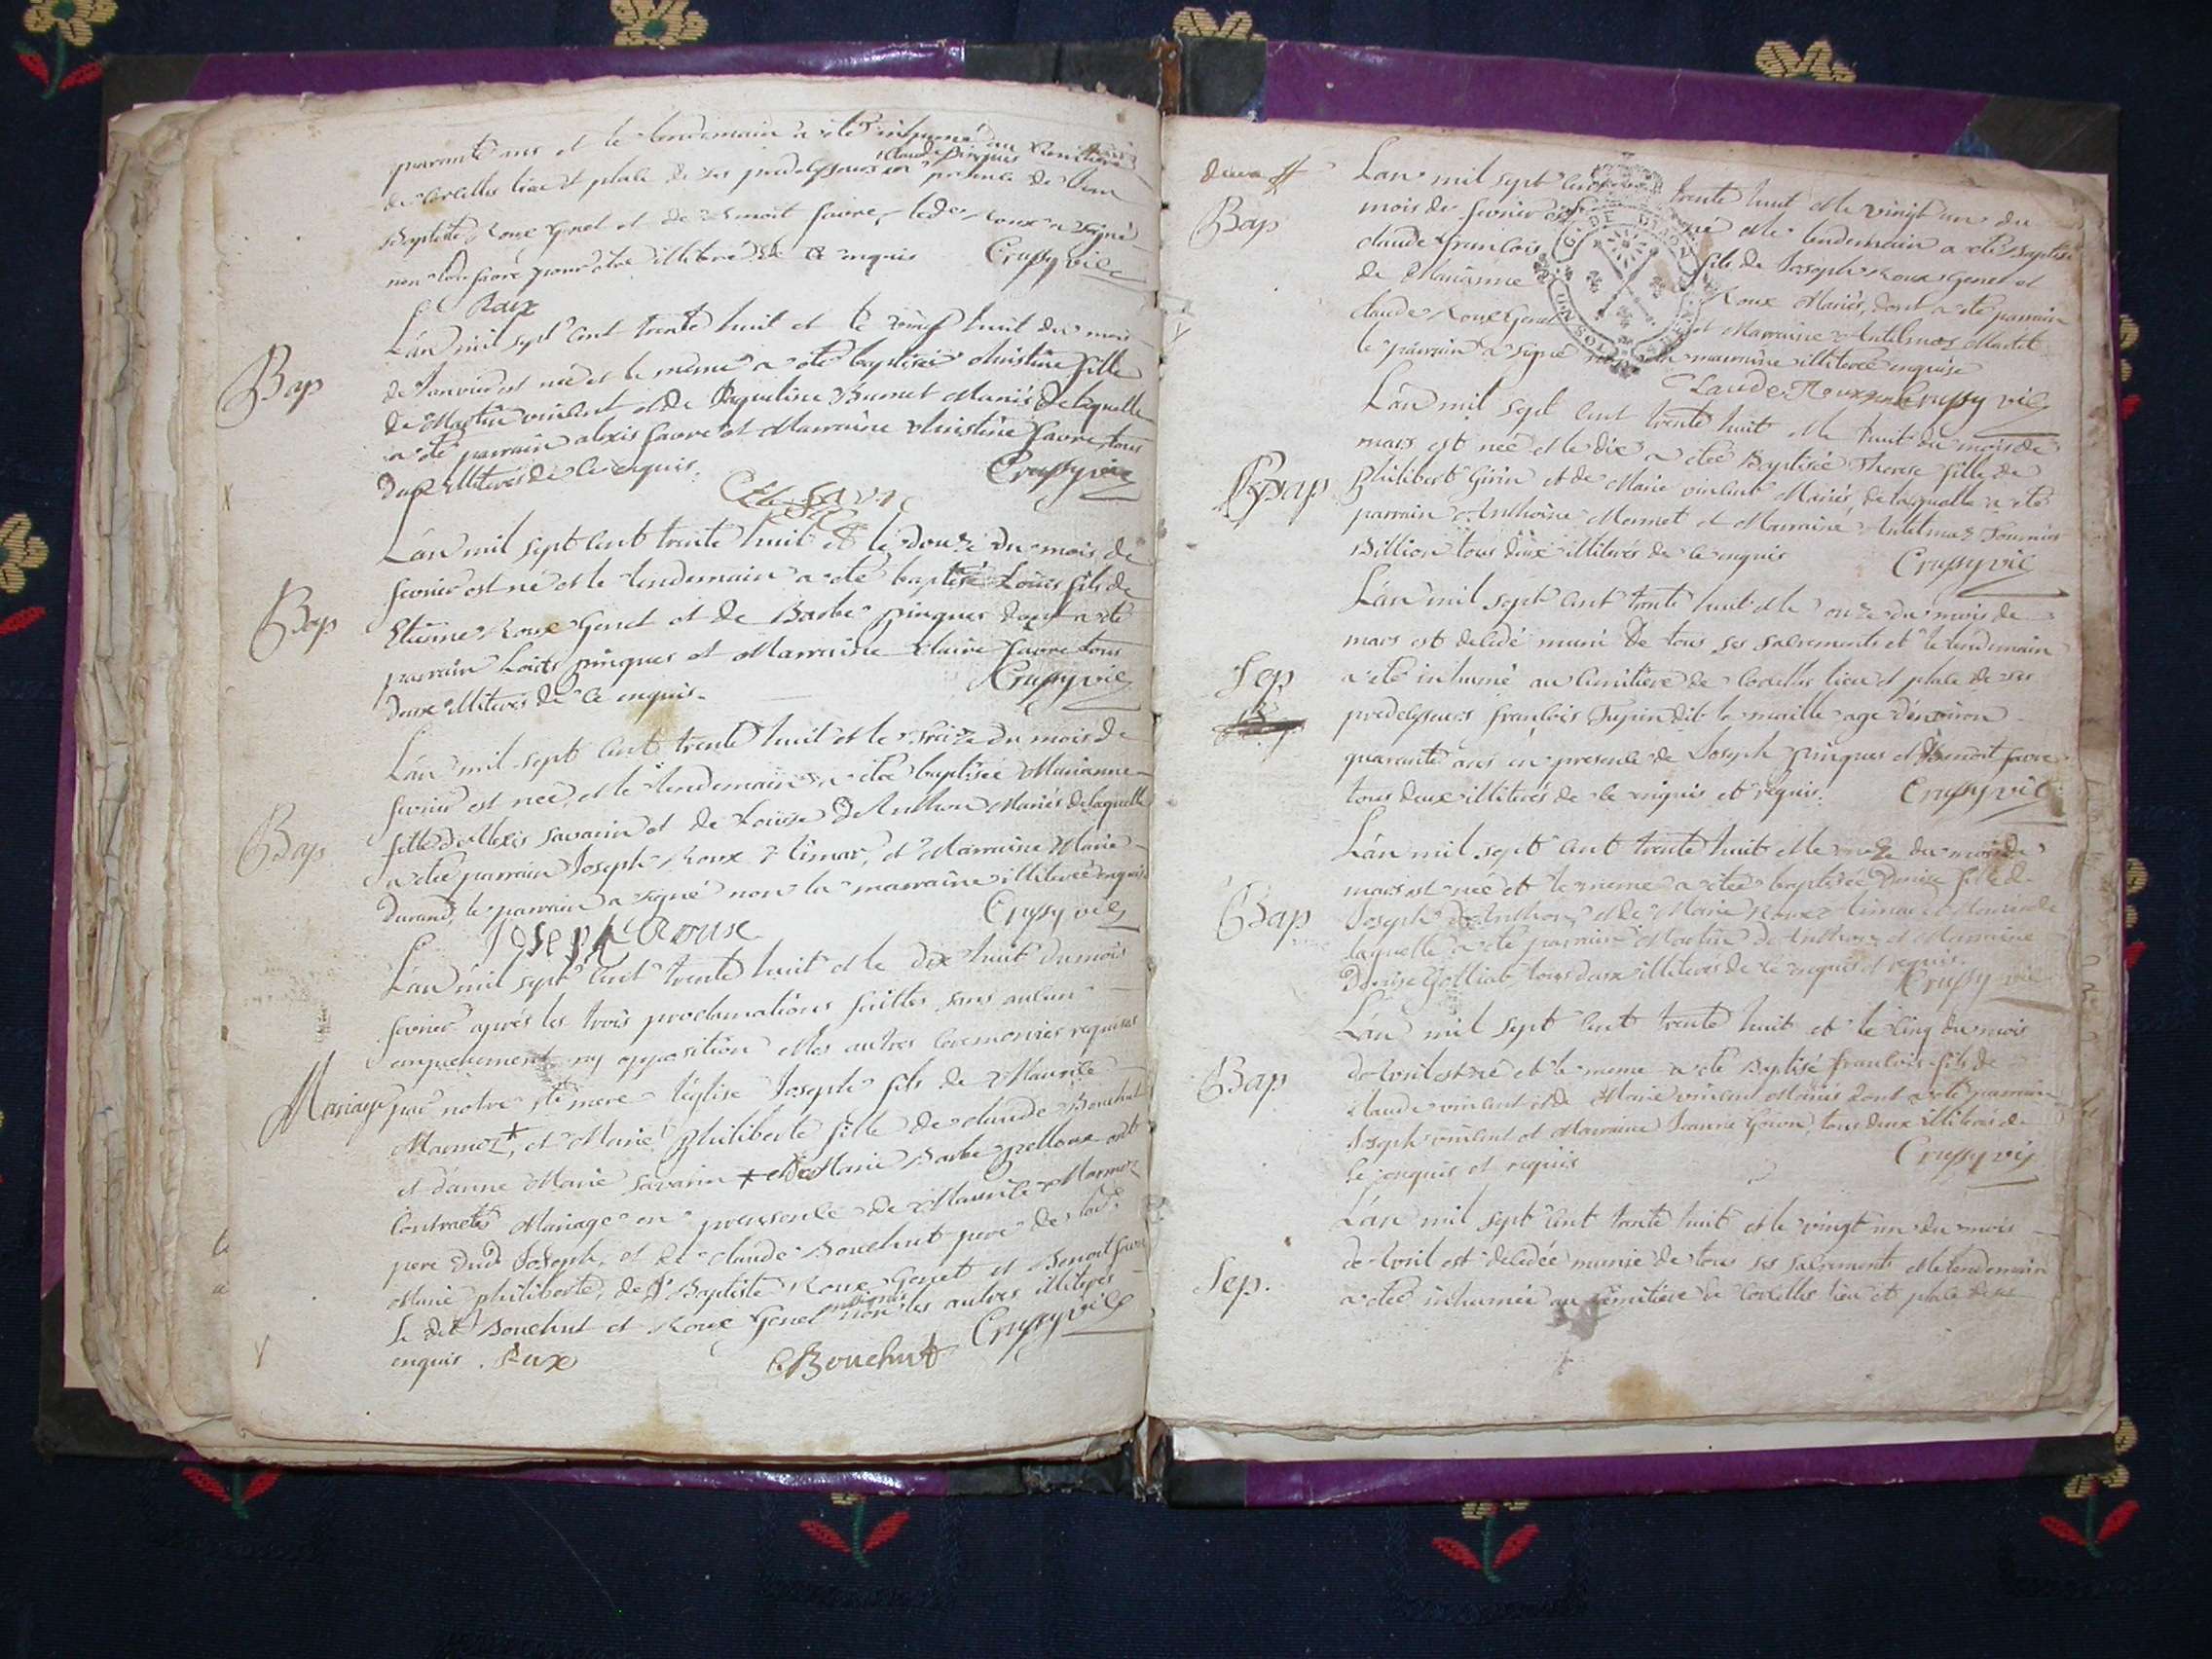 quarante ans et le lendemain a été inhumé au Cimitiere
de Corcelles lieu et place de ses predecesseurs en presence de Jean
Claude Pinques
Baptiste Roux Genet et de Benoit favre, led. Roux a signé
non led. favre pour etre illitéré de ce enquis Crussy vic
Roux
L'an mil sept cent trente huit et le vingt huit du mois
Bap
de Janvier est née et le meme a eté baptisée Christine fille
de Martin vincent et de Jaqueline Burnet Mariés de laquelle
a eté parrain alexis favre et Marraine Christine favre tous
deux illiterés de ce enquis. Crussy vic
L'an mil sept cent trente huit et le douze du mois de
Bap
fevrier est né et le lendemain a eté baptisé Loüis fils de
Etienne Roux Genet et de Barbe pinques dont a eté
parrain Loüis pinques et Marraine Claire favre tous
deux illiterés de ce enquis. Crussy vic
L'an mil sept cent trente huit et le treize du mois de
Bap
fevrier est née, et le lendemain a etée baptisée Marianne
fille d'Alexis savarin et de Loüise D'Anthon Mariés de laquelle
a etée parrain Joseph Roux Limar, et Marraine Marie
Durand, le parrain a signé non la marraine illiterée enquise
Joseph Roux Crussy vic
L'an mil sept cent trente huit et le dix huit du mois
fevrier aprés les trois proclamations faittes sans aucun
empechement ny opposition et les autres ceremonies requises
Mariage par notre ste mere l'église Joseph fils de Maurice
Marmoz +, et Marie philiberte fille de claude Bouchut
et d'anne Marie savarin + et de Marie Barbe pelloux ont
Contracté Mariage en presence de Maurice Marmoz
pere dud. Joseph, et de claude Bouchut pere de lad.
Marie philiberte, de J Baptiste Roux Genet et Benoit favre
Le dit Bouchut et Roux Genet non les autres illiterés
ont signé
enquis. Roux C Bouchut Crussy vic
deux ff
L'an mil sept cent trente huit et le vingt un du
Bap
mois de fevrier est né et le lendemain a eté baptisé
claude françois fils de Joseph Roux Genet et
de Marianne Roux Mariés, dont a eté parrain
claude Roux Genet et Marraine Antelmaz Martel
le parrain a signé non la marraine illiterée enquise
Claude Roux Crussy vic
G. DE DIJON
L'an mil sept cent trente huit et le huit du mois de
mars est née et le dix a etée Baptisée Therese fille de
Bap
philibert Girin et de Marie vincent Mariés, de laquelle a eté
parrain Anthoine Mermet et Marraine Antelmaz Fournier
Billion tous deux illiterés de ce enquis Crussy vic
L'an mil sept cent trente huit et le onze du mois de
mars est decedé muni de tous ses sacrements et le lendemain
Sep.
a eté inhumé au Cimitiere de Corcelles lieu et place de ses
predecesseurs françois Tupin dit la maille agé d'environ
quarante ans en presence de Joseph pinques et Benoit favre
tous deux illiterés de ce enquis et requis. Crussy vic
L'an mil sept cent trente huit et le onze du mois de
mars est née et le meme a etée baptisée Denise fille de
Bap
Joseph D'Anthon et de Marie Roux Limar Mariés de
laquelle a eté parrain Martin D'Anthon et Marraine
Denise Golliat tous deux illiterés de ce enquis et requis.
Crussy vic
L'an mil sept cent trente huit et le cinq du mois
Bap
d'avril est né et le meme a eté Baptisé francois fils de
claude vincent et de Marie vincent Mariés dont a eté parrain
Joseph vincent et Marraine Jeanne Goüon, tous deux illiterés de
ce enquis et requis Crussy vic
L'an mil sept cent trente huit et le vingt un du mois
Sep.
d'avril est decedée munie de tous ses sacrements et le lendemain
a etée inhumée au Cimitiere de Corcelles lieu et place de ses